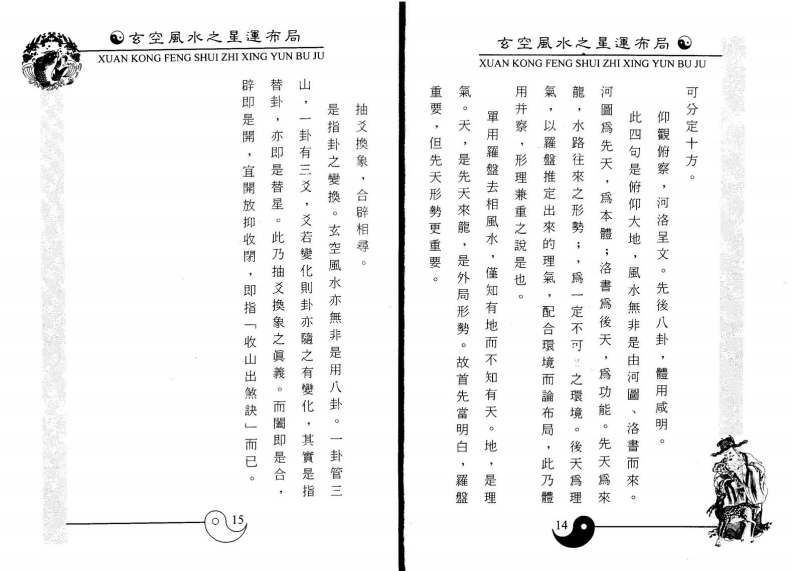 玄空風水之星運布局
XUAN KONG FENG SHUI ZHI XING YUN BU JU
可分定十方。
仰觀俯察，河洛呈文。先後八卦，體用咸明。
此四句是俯仰大地，風水無非是由河圖、洛書而來。
河圖爲先天，爲本體；洛書爲後天，爲功能。先天爲來
龍，水路往來之形勢；，爲一定不可之環境。後天爲理
氣，以羅盤推定出來的理氣，配合環境而論布局，此乃體
用并察，形理兼重之說是也。
單用羅盤去相風水，僅知有地而不知有天。地，是理
氣。天，是先天來龍，是外局形勢。故首先當明白，羅盤
重要，但先天形勢更重要。
14
玄空風水之星運布局
XUAN KONG FENG SHUI ZHI XING YUN BU JU
抽爻換象，合辟相尋。
是指卦之變換。玄空風水亦無非是用八卦。一卦管三
山，一卦有三爻，爻若變化則卦亦隨之有變化，其實是指
替卦，亦即是替星。此乃抽爻換象之眞義。而闔即是合，
辟即是開，宜開放抑收閉，即指「收山出煞訣」而已。
15